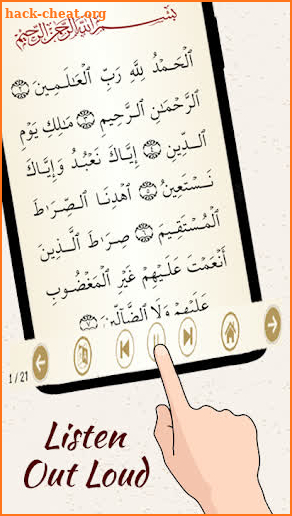 hack-cheat.org
بِسْمِ اللَّهِ الرَّحْمَٰنِ الرَّحِيمِ
ٱلْحَمْدُ لِلَّهِ رَبِّ ٱلْعَـٰلَمِينَ ٢
ٱلرَّحْمَـٰنِ ٱلرَّحِيمِ ٣ مَـٰلِكِ يَوْمِ
ٱلدِّينِ ٤ إِيَّاكَ نَعْبُدُ وَإِيَّاكَ
نَسْتَعِينُ ٥ ٱهْدِنَا ٱلصِّرَٰطَ
ٱلْمُسْتَقِيمَ ٦ صِرَٰطَ ٱلَّذِينَ
أَنْعَمْتَ عَلَيْهِمْ غَيْرِ ٱلْمَغْضُوبِ
عَلَيْهِمْ وَلَا ٱلضَّآلِّينَ ٧
1 / 21
Listen
Out Loud
hack-cheat.org